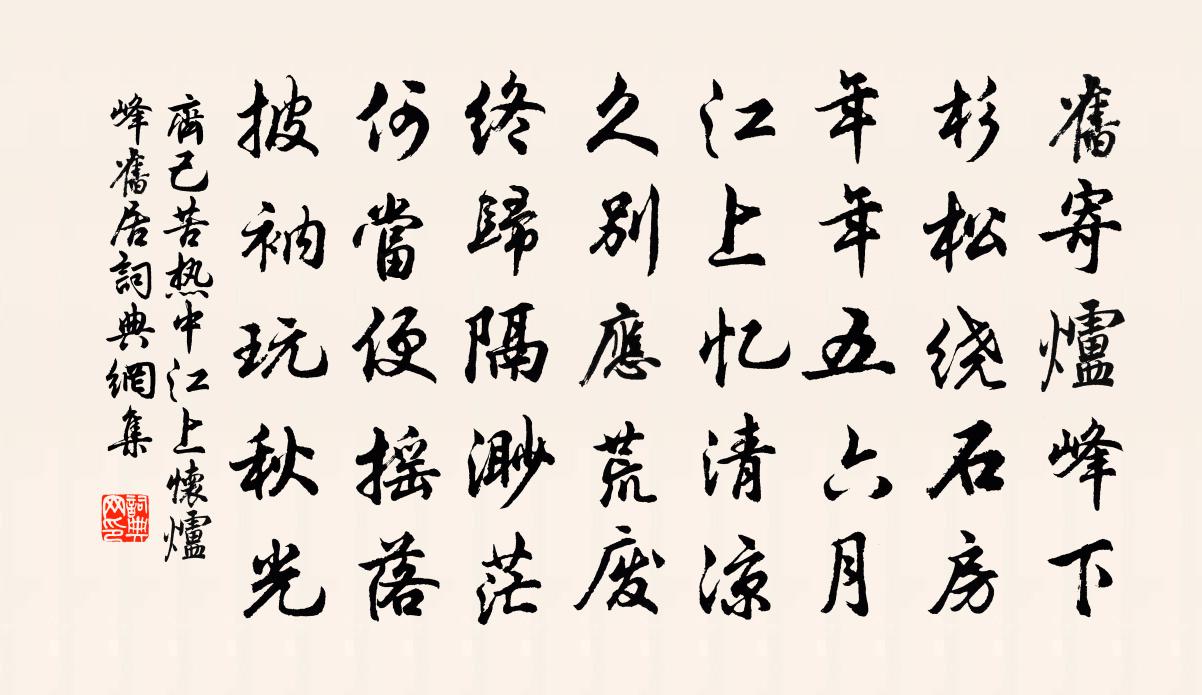 舊寄爐峰下
杉松绕石房
年年五六月
江上忆清凉
久别應荒废
终歸隔渺茫
何當便摇落
披衲玩秋光
齊己苦热中江上懷爐
峰舊居詞典網集
詞典
网印